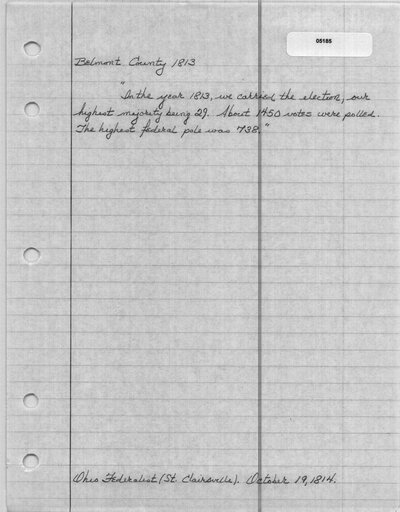 05185
Belmont County 1813
"In the year 1813, we carried the election, our
highest majority being 29. About 1450 votes were polled.
The highest federal pole was 738."
Ohio Federalist (St. Clairsville). October 19, 1814.